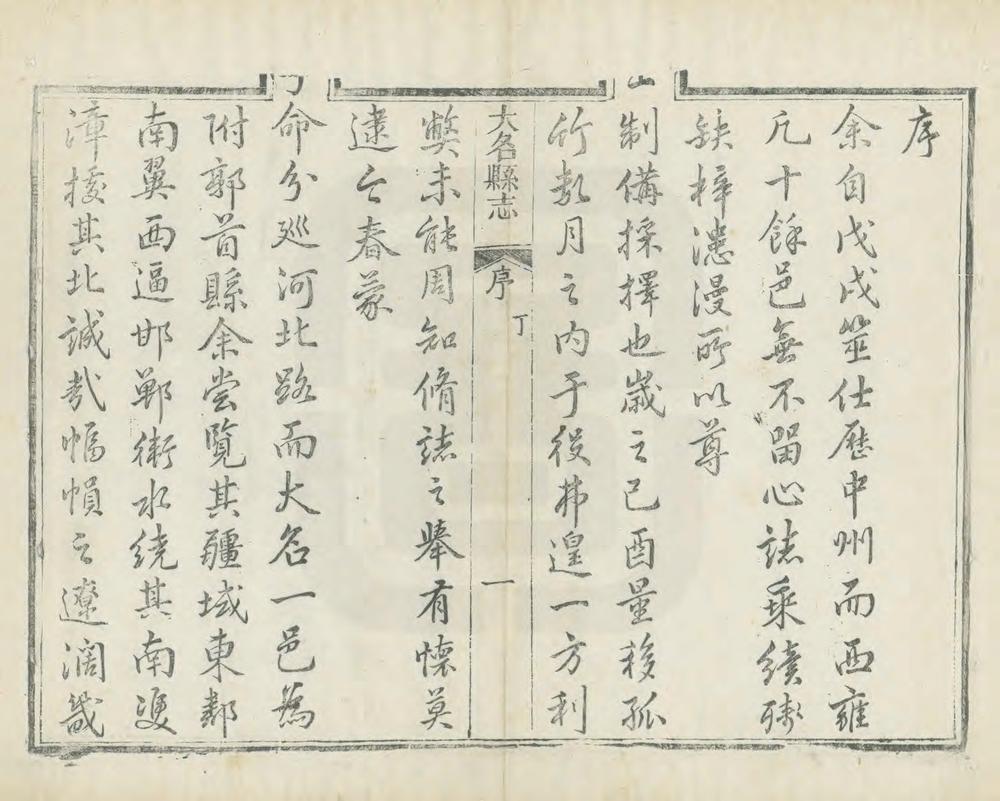 序
余自戊戌筮仕歷中州而西雍
凡十餘邑無不畱心誌乘續殘
缺梓漶漫所以尊
制備採擇也歲之己酉量移孤
竹數月之內于役弗遑一方利
大名縣志
序
丁
一
獘未能周知脩誌之舉有懷莫
逮今春蒙
命分廵河北路而大名一邑為
附郭首縣余嘗覽其疆域東鄰
南翼西逼邯鄲衛水繞其南雙
漳揆其北誠哉幅幀之遼濶畿